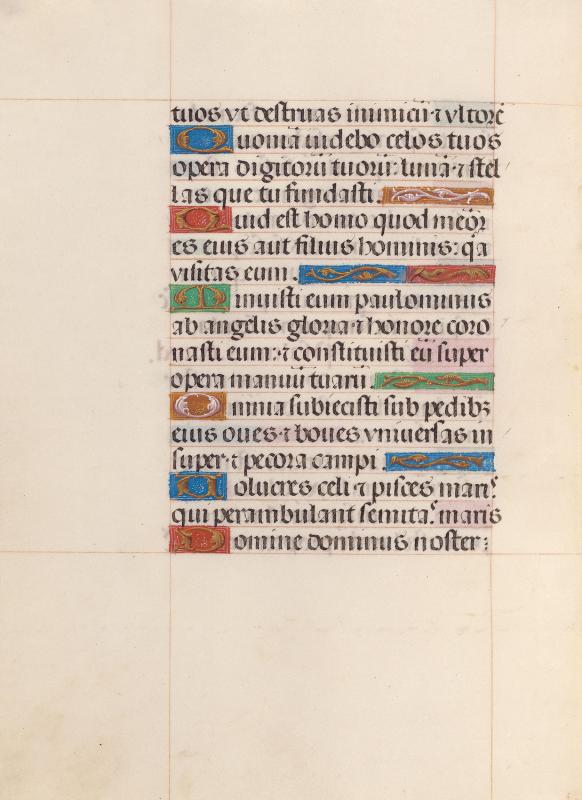 tuos vt destruas inimicū ⁊ vltorē
Quoniā videbo celos tuos
opera digitorū tuorū: lunā ⁊ stel
las que tu fundasti.
Quid est homo quod meōr
es eius aut filius hominis: qa
visitas eum.
Minuisti eum paulominus
ab angelis gloria ⁊ honore coro
nasti eum: ⁊ constituisti eū super
opera manuū tuarū.
Omnia subiecisti sub pedibꝫ
eius oues ⁊ boues vniuersas in
super ⁊ pecora campi.
Uolucres celi ⁊ pisces maris
qui perambulant semitas maris
Domine dominus noster: